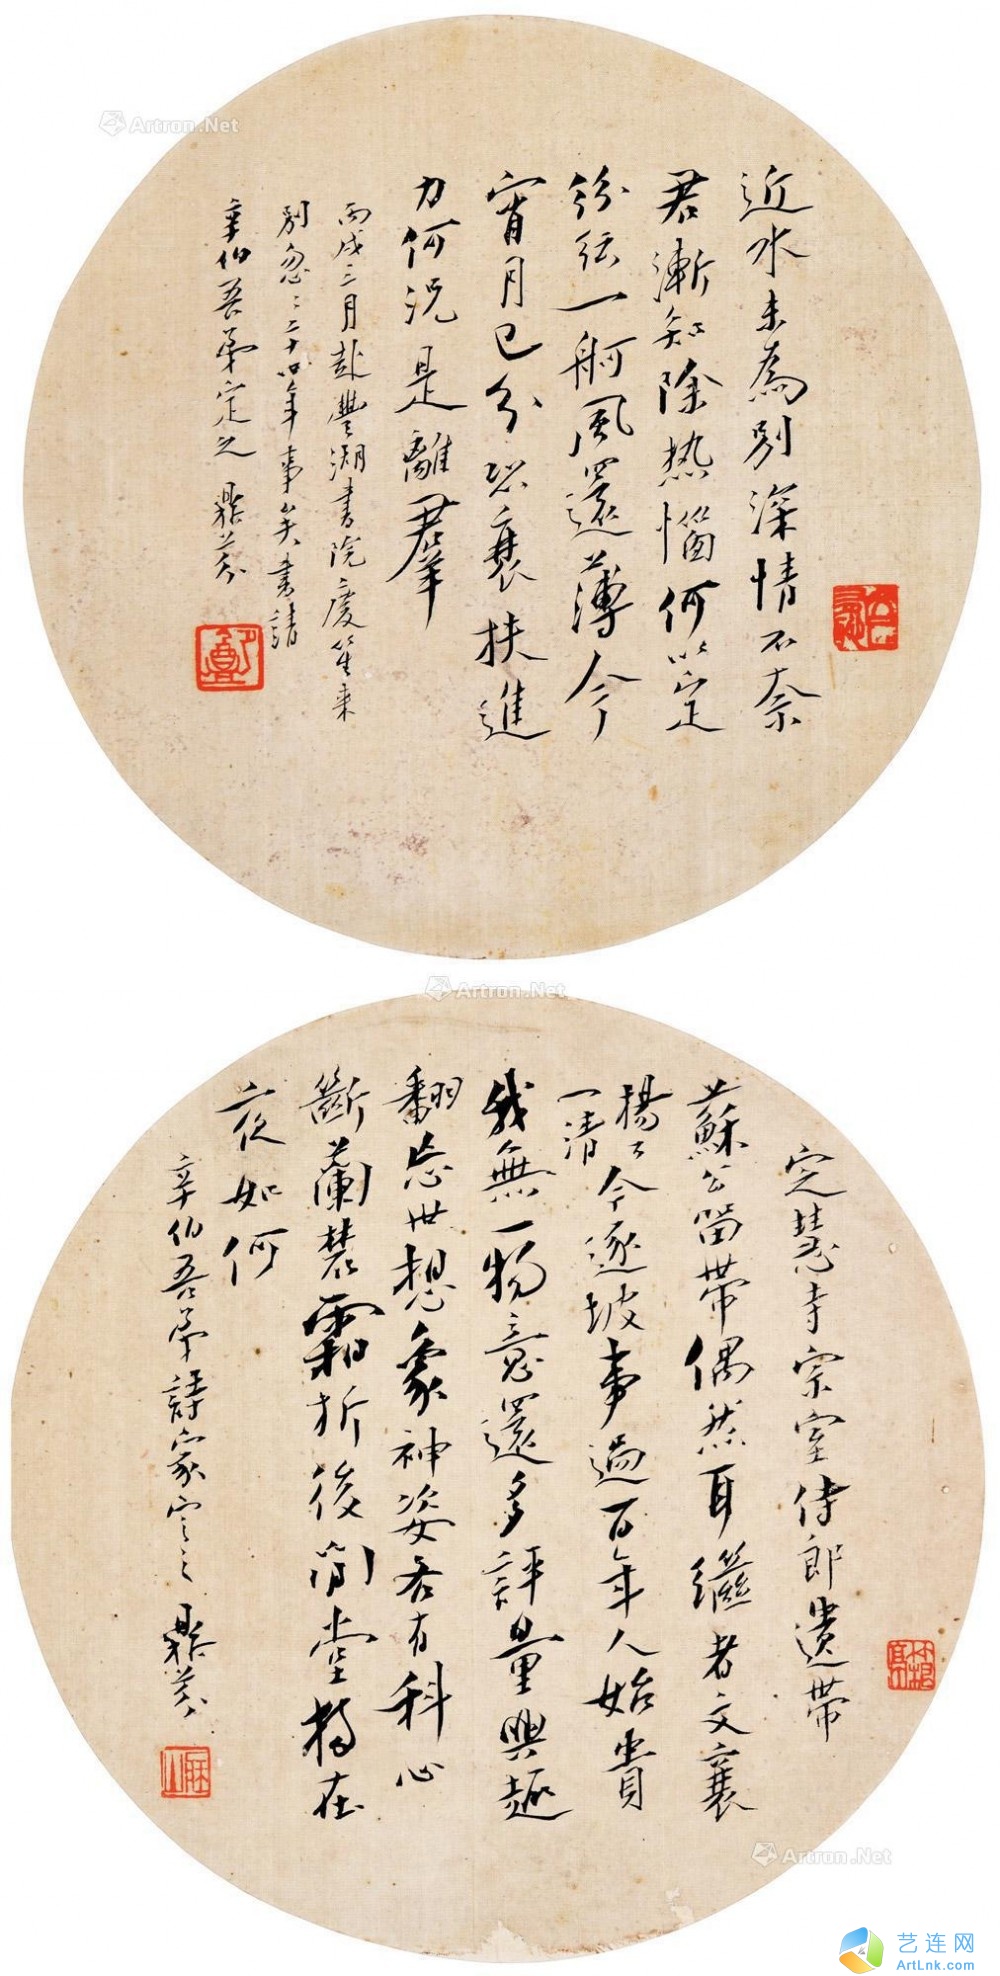 近水未為別深情不奈
君漸知除热惱何以定
紛紜一舸風還薄今
宵月已分恐衰扶進
力何況是離羣
丙戌三月赴豐湖書院度笙来
別忽ミ二十四年事矣書請
辛伯吾弟定之 鼎芬
定慧寺宗室侍郎遺帶
蘇公留帶偶然耳繼者文襄
楊
一清
公今逐坡事過百年人始貴
我無一物意還多評量興趣
翻忘世想象神姿各有科心
斷蘭叢霜折後閒堂特在
夜如何
辛伯吾弟詩家定之 鼎芬
Artron.Net
Artron.Net
Artron.Net
艺连网
ArtLnk.com